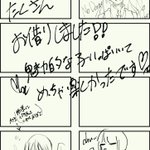 たくさん
お借りしました!!
魅力的な子いっぱいいて
めっちゃ楽しかったです♡